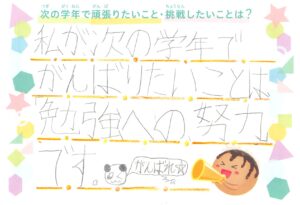 次の学年で頑張りたいこと・挑戦したいことは？
私が次の学年で
がんばりたいことは
勉強への努力
です。
がんばれ☆